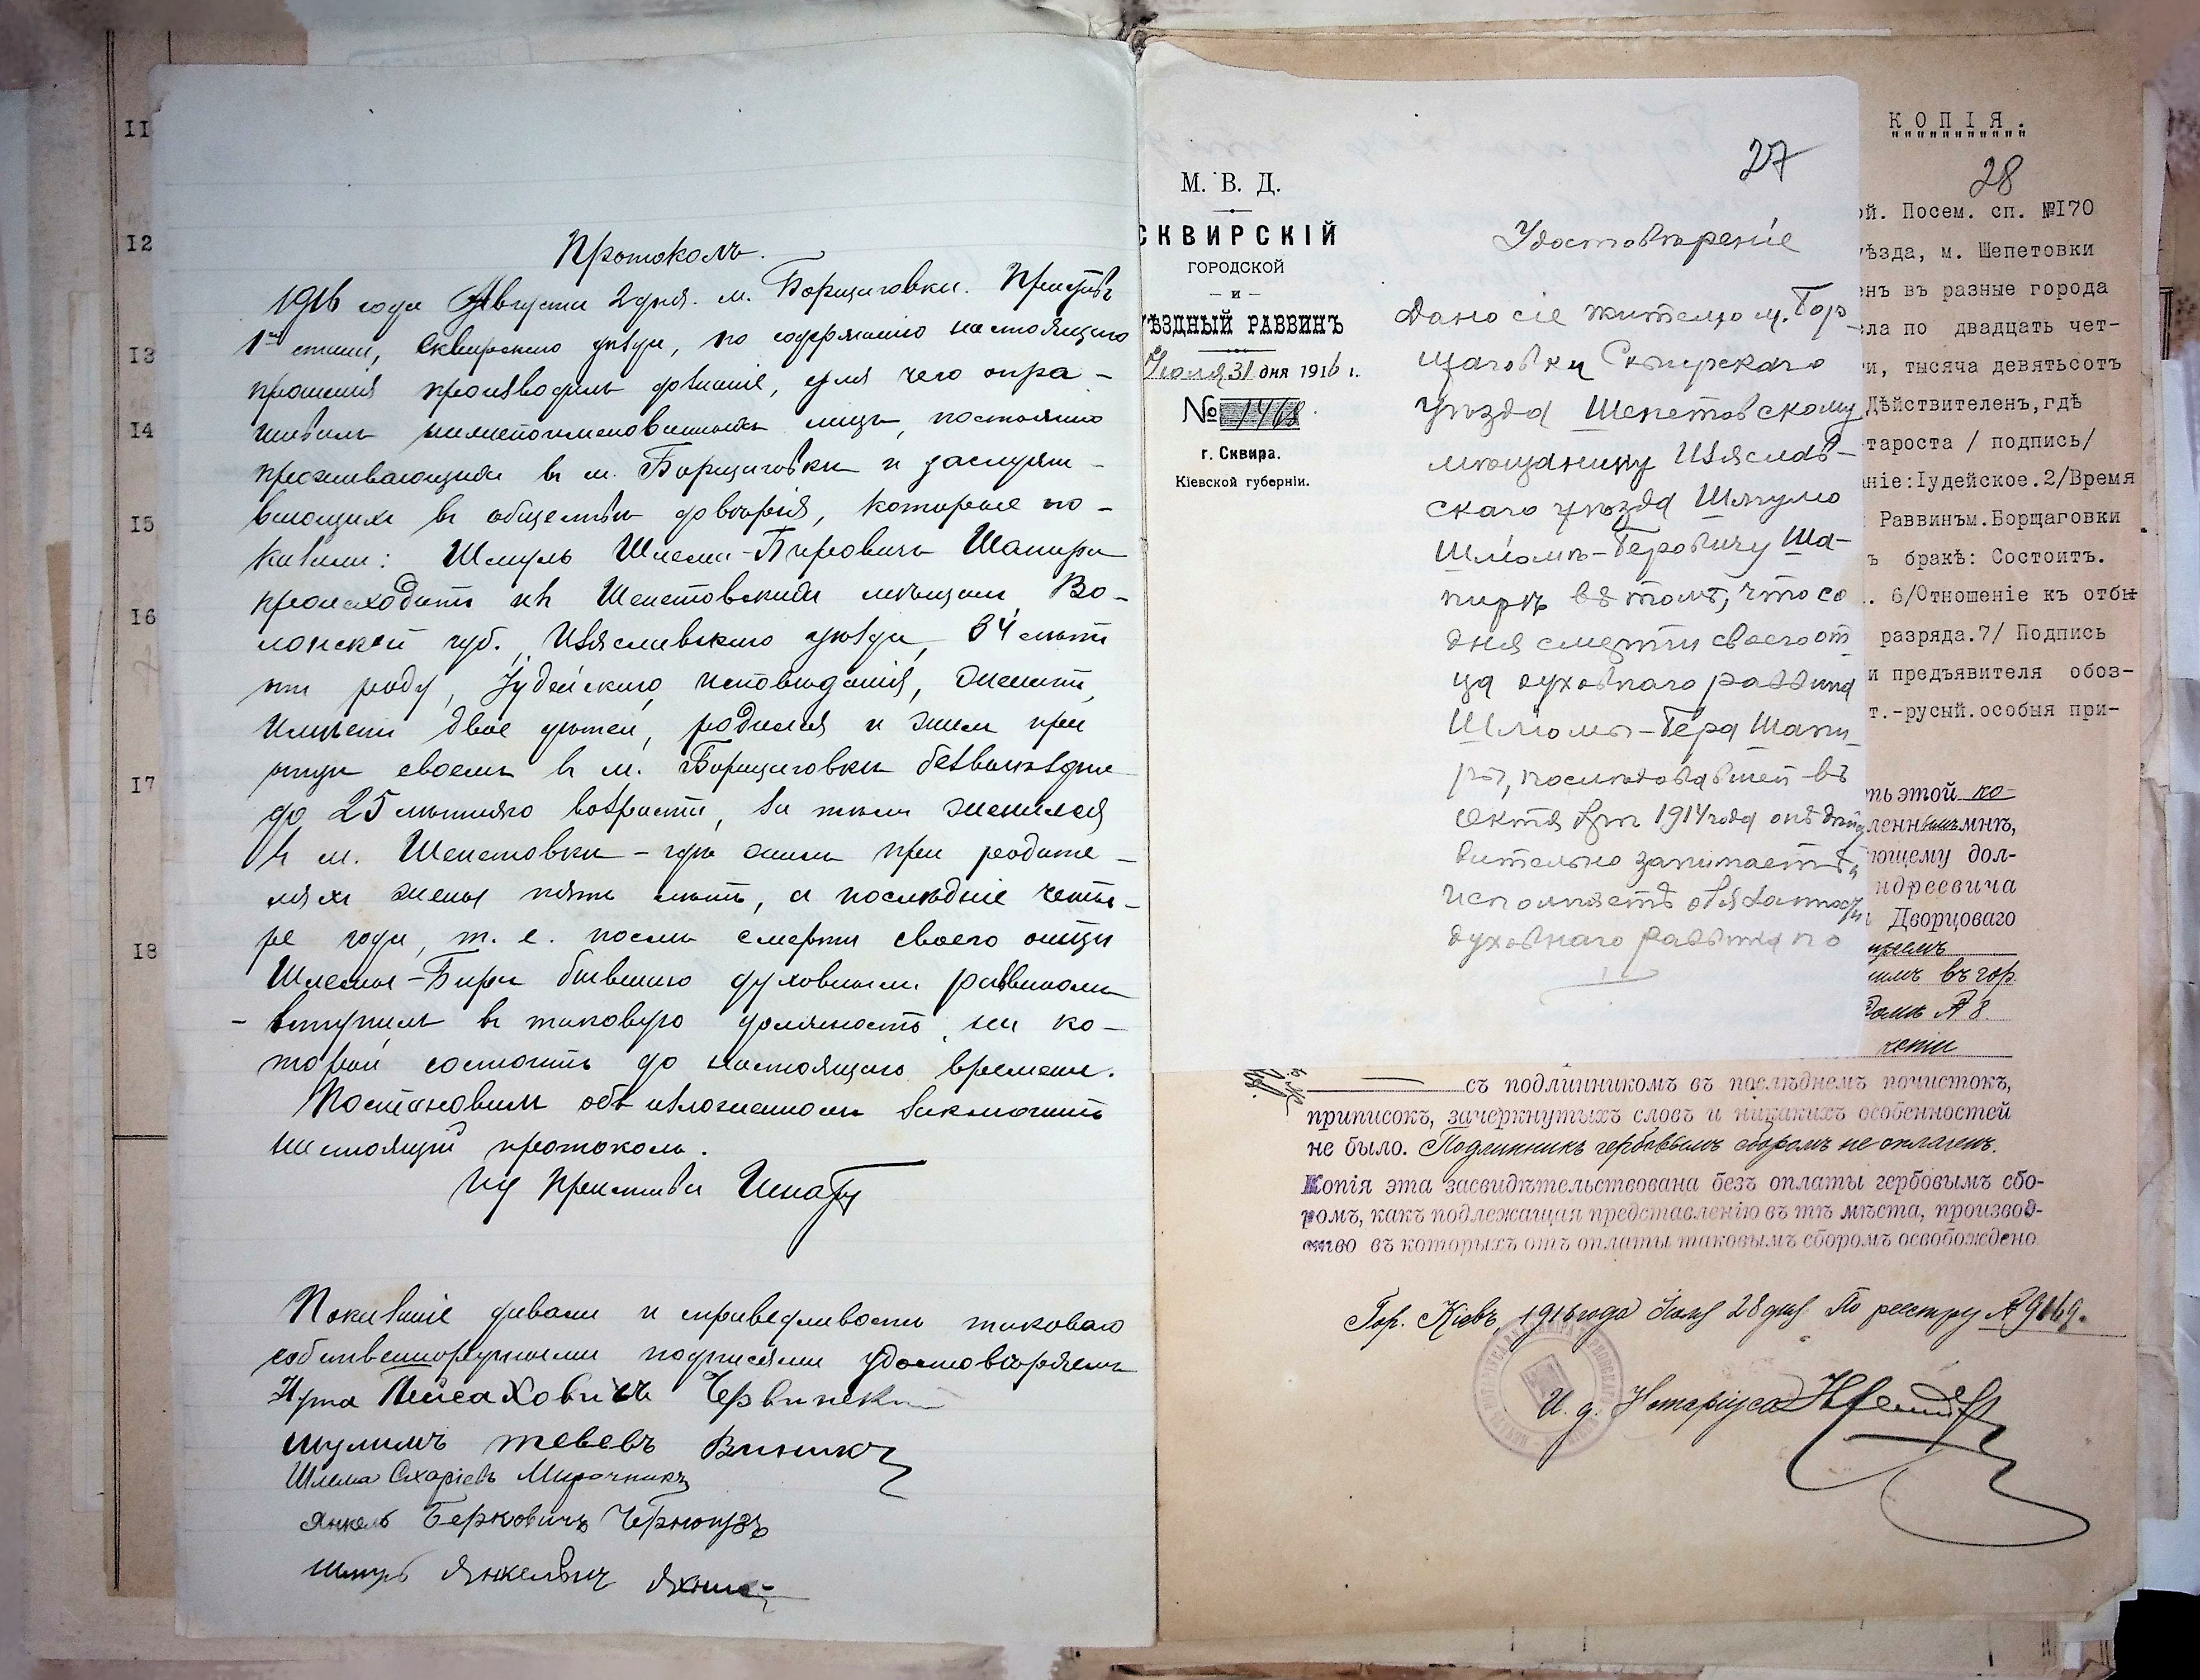 II
I2
I3
I4
I5
I6
I7
I8
Протоколъ.
1916 года Августа 2 дня. м. Борщаговка. Приставъ
1го стана, Сквирскаго уѣзда, по содержанію настоящаго
прошенія производилъ дознаніе, для чего опра-
шивалъ нижепоименованныхъ лицъ, постоянно
проживающихъ въ м. Борщаговкѣ и заслужи-
вающихъ въ обществѣ довѣрія, которые по-
казали: Шмуль Шлема-Беровичъ Шапира
происходитъ изъ Шепетовскихъ мѣщанъ Во-
лынской губ., Изяславскаго уѣзда, 34 лѣтъ
отъ роду, Іудейскаго исповѣданія, женатъ,
имѣетъ двое дѣтей, родился и жилъ при
отцѣ своемъ въ м. Борщаговкѣ безвыѣздно
до 25 лѣтняго возраста, за тѣмъ женился
въ м. Шепетовкѣ - гдѣ жилъ при родите-
ляхъ жены пять лѣтъ, а послѣдніе четы-
ре года, т. е. послѣ смерти своего отца
Шлемы-Бера бывшаго духовнымъ раввиномъ
- вступилъ въ таковую должность, на ко-
торой состоитъ до настоящаго времени.
Постановилъ объ изложенномъ заключить
настоящій протоколъ.
ИД Пристава
Показаніе давали и справедливость таковаго
собственноручными подписями удостовѣряемъ
Нута Пейсаховичъ Червинскій
Шулимъ Тевевъ Винникъ
Шлема Схаріевъ Мирочникъ
Янкель Берковичъ
Янкелевич
М. В. Д.
СКВИРСКІЙ
ГОРОДСКОЙ
— и —
УѢЗДНЫЙ РАВВИНЪ
Іюля 31 дня 1916 г.
№ 1468
г. Сквира.
Кіевской губерніи.
27
Удостовѣреніе
Дано сіе жителю м. Бор
щаговки Сквирскаго
уѣзда Шепетовскому
мѣщанину Изяслав-
скаго уѣзда Шмулю
Шлёмѣ-Беровичу Ша-
пирѣ въ томъ, что со
дня смерти своего от
ца духовнаго раввина
Шлёмы-Бера Шапи-
ры, послѣдовавшей въ
Октябрѣ 1914 года онъ дѣйст
вительно занимаетъ и
исполняетъ обязанность
духовнаго раввина по
КОПІЯ.
28
ой. Посем. сп. №I70
уѣзда, м. Шепетовки
енъ въ разные города
ела по двадцать чет-
ри, тысяча девятьсотъ
Дѣйствителенъ,гдѣ
тароста / подпись/
ніе:Іудейское.2/Время
Раввинъм.Борщаговки
ъ бракѣ: Состоитъ.
. 6/Отношеніе къ отбы
разряда.7/ Подпись
и предъявителя обоз-
т.-русый.особыя при-
ть этой ко-
ленным мнѣ,
ющему дол-
ндреевича
Дворцоваго
въ гор.
домѣ № 8.
копіи
съ подлинникомъ въ послѣднемъ почистокъ,
приписокъ, зачеркнутыхъ словъ и никакихъ особенностей
не было. Подлинникъ гербовымъ сборомъ не оплаченъ.
Копія эта засвидѣтельствована безъ оплаты гербовымъ сбо-
ромъ, какъ подлежащая представленію въ тѣ мѣста, производ-
ство въ которыхъ отъ оплаты таковымъ сборомъ освобождено
Гор. Кіевъ, 1916 года Іюля 28 дня По реестру № 9169.
И. д. Нотаріуса